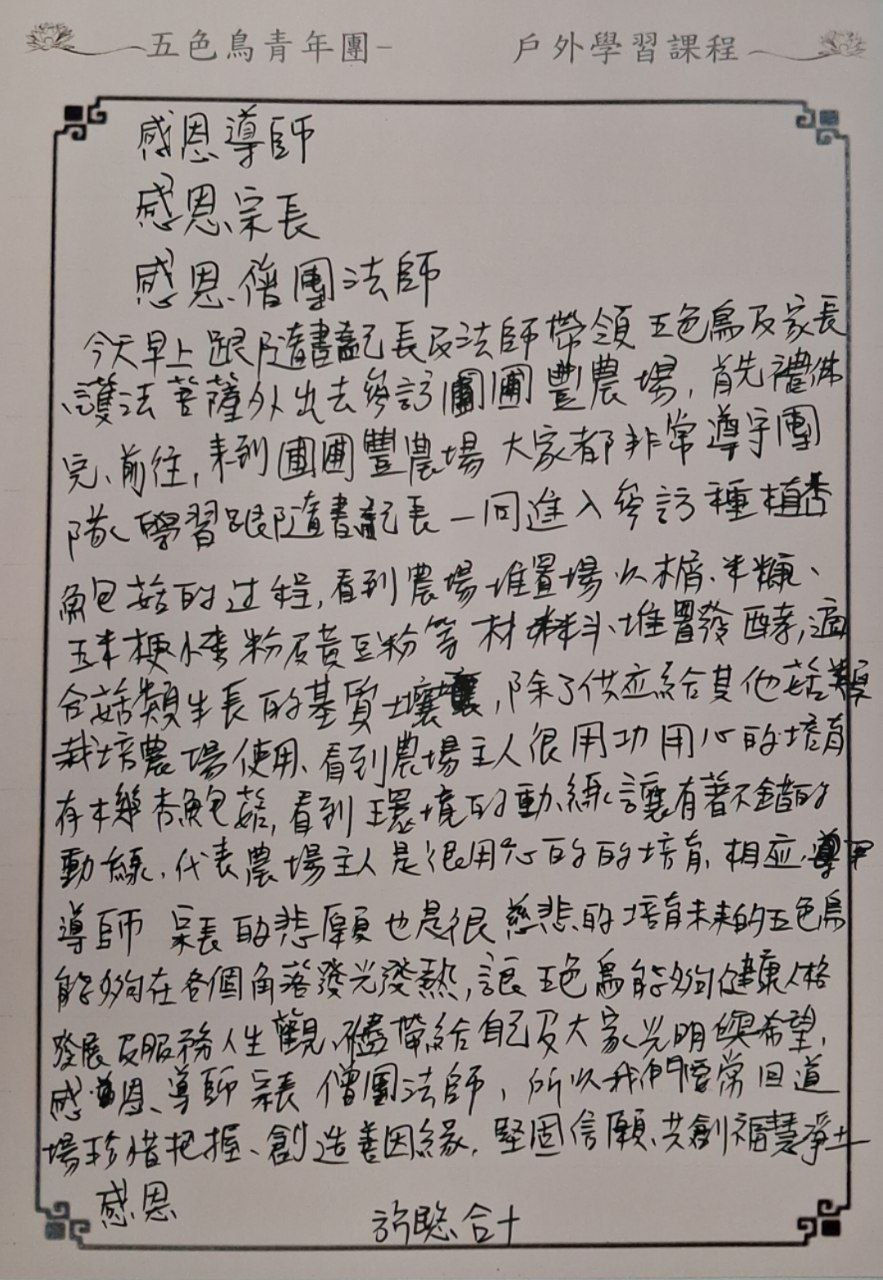 五色鳥青年團- 戶外學習課程
感恩導師
感恩、宗長
感恩、僧團法師
今天早上跟隨書記長及法師帶領五色鳥及家長
護法菩薩外出去參訪圃豐農場，首先禮佛
完、前往，來到圃豐農場大家都非常遵守團
隊學習跟隨書記長一同進入參訪種植杏
鮑菇的过程，看到農場堆置場以木屑、米糠、
玉米梗小麥粉及黃豆粉等材料、堆置發酵，適
合菇類生長的基質土壤，除了供应給其他菇類
栽培農場使用、看到農場主人很用功用心的培育
存本幾杏鮑菇，看到環境的動線讓有著不錯的
動線、代表農場主人是很用心的的培育、相应、導
導師 宗長的悲願也是很慈悲的培育未來的五色鳥
能夠在各個角落發光發熱，讓五色鳥能夠健康人格
發展及服務人生觀、儘帶給自己及大家光明與希望，
感恩、導師宗長僧團法師，所以我們要常回道
場珍惜把握、創造善因緣，堅固信願、共創福慧淨土
感恩
許聰合十